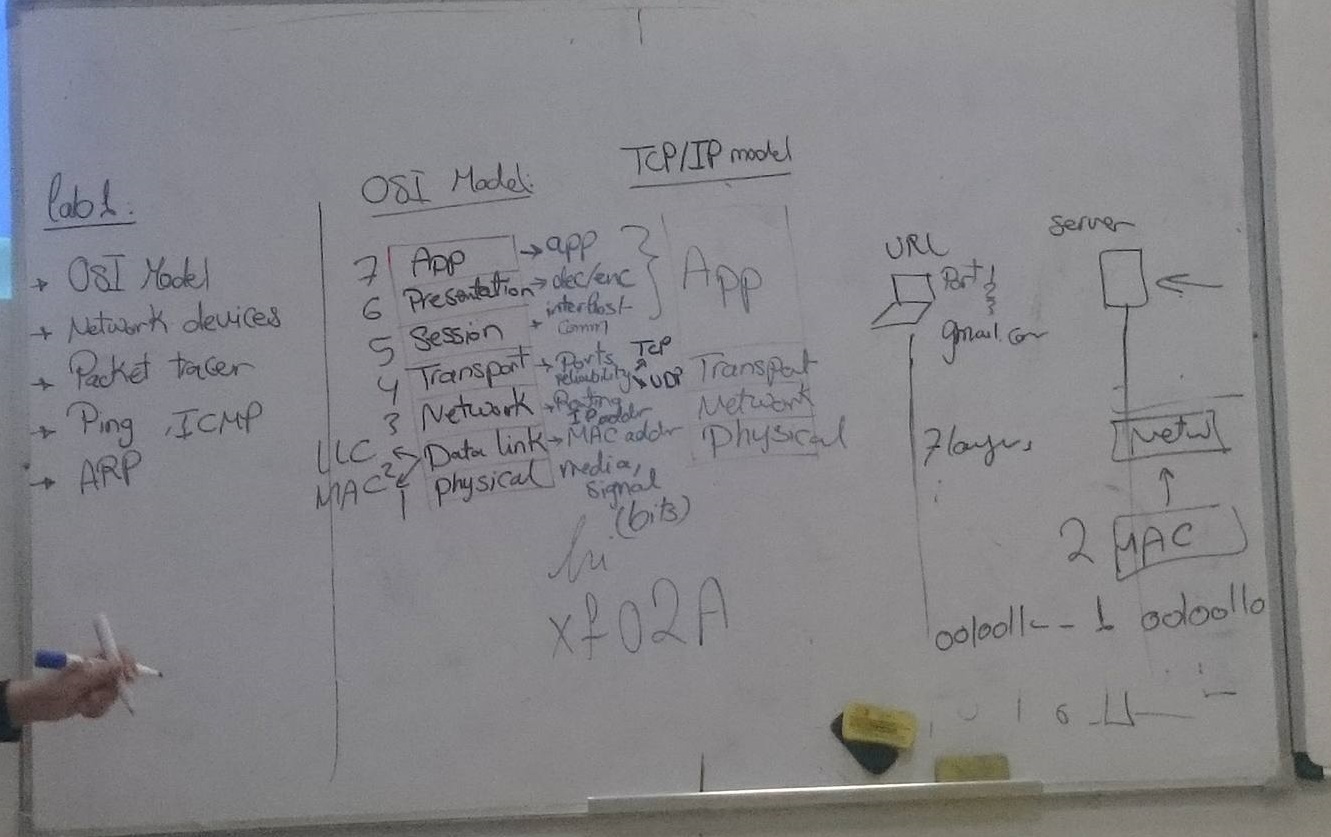 lab 1.
→ OSI Model
→ Network devices
→ Packet tracer
→ Ping , ICMP
→ ARP
OSI Model:
7 App → app
6 Presentation → dec/enc
5 Session → interhost comm
4 Transport → Ports reliability TCP UDP
3 Network → Routing IP addr
2 Data link → MAC addr
LLC
MAC
1 physical media, signal
(bits)
hi
xf02A
TCP/IP model
App
Transport
Network
physical
URL
Port
gmail.com
7 layers
server
Netw
2 MAC
001 0011-- 1 00100110